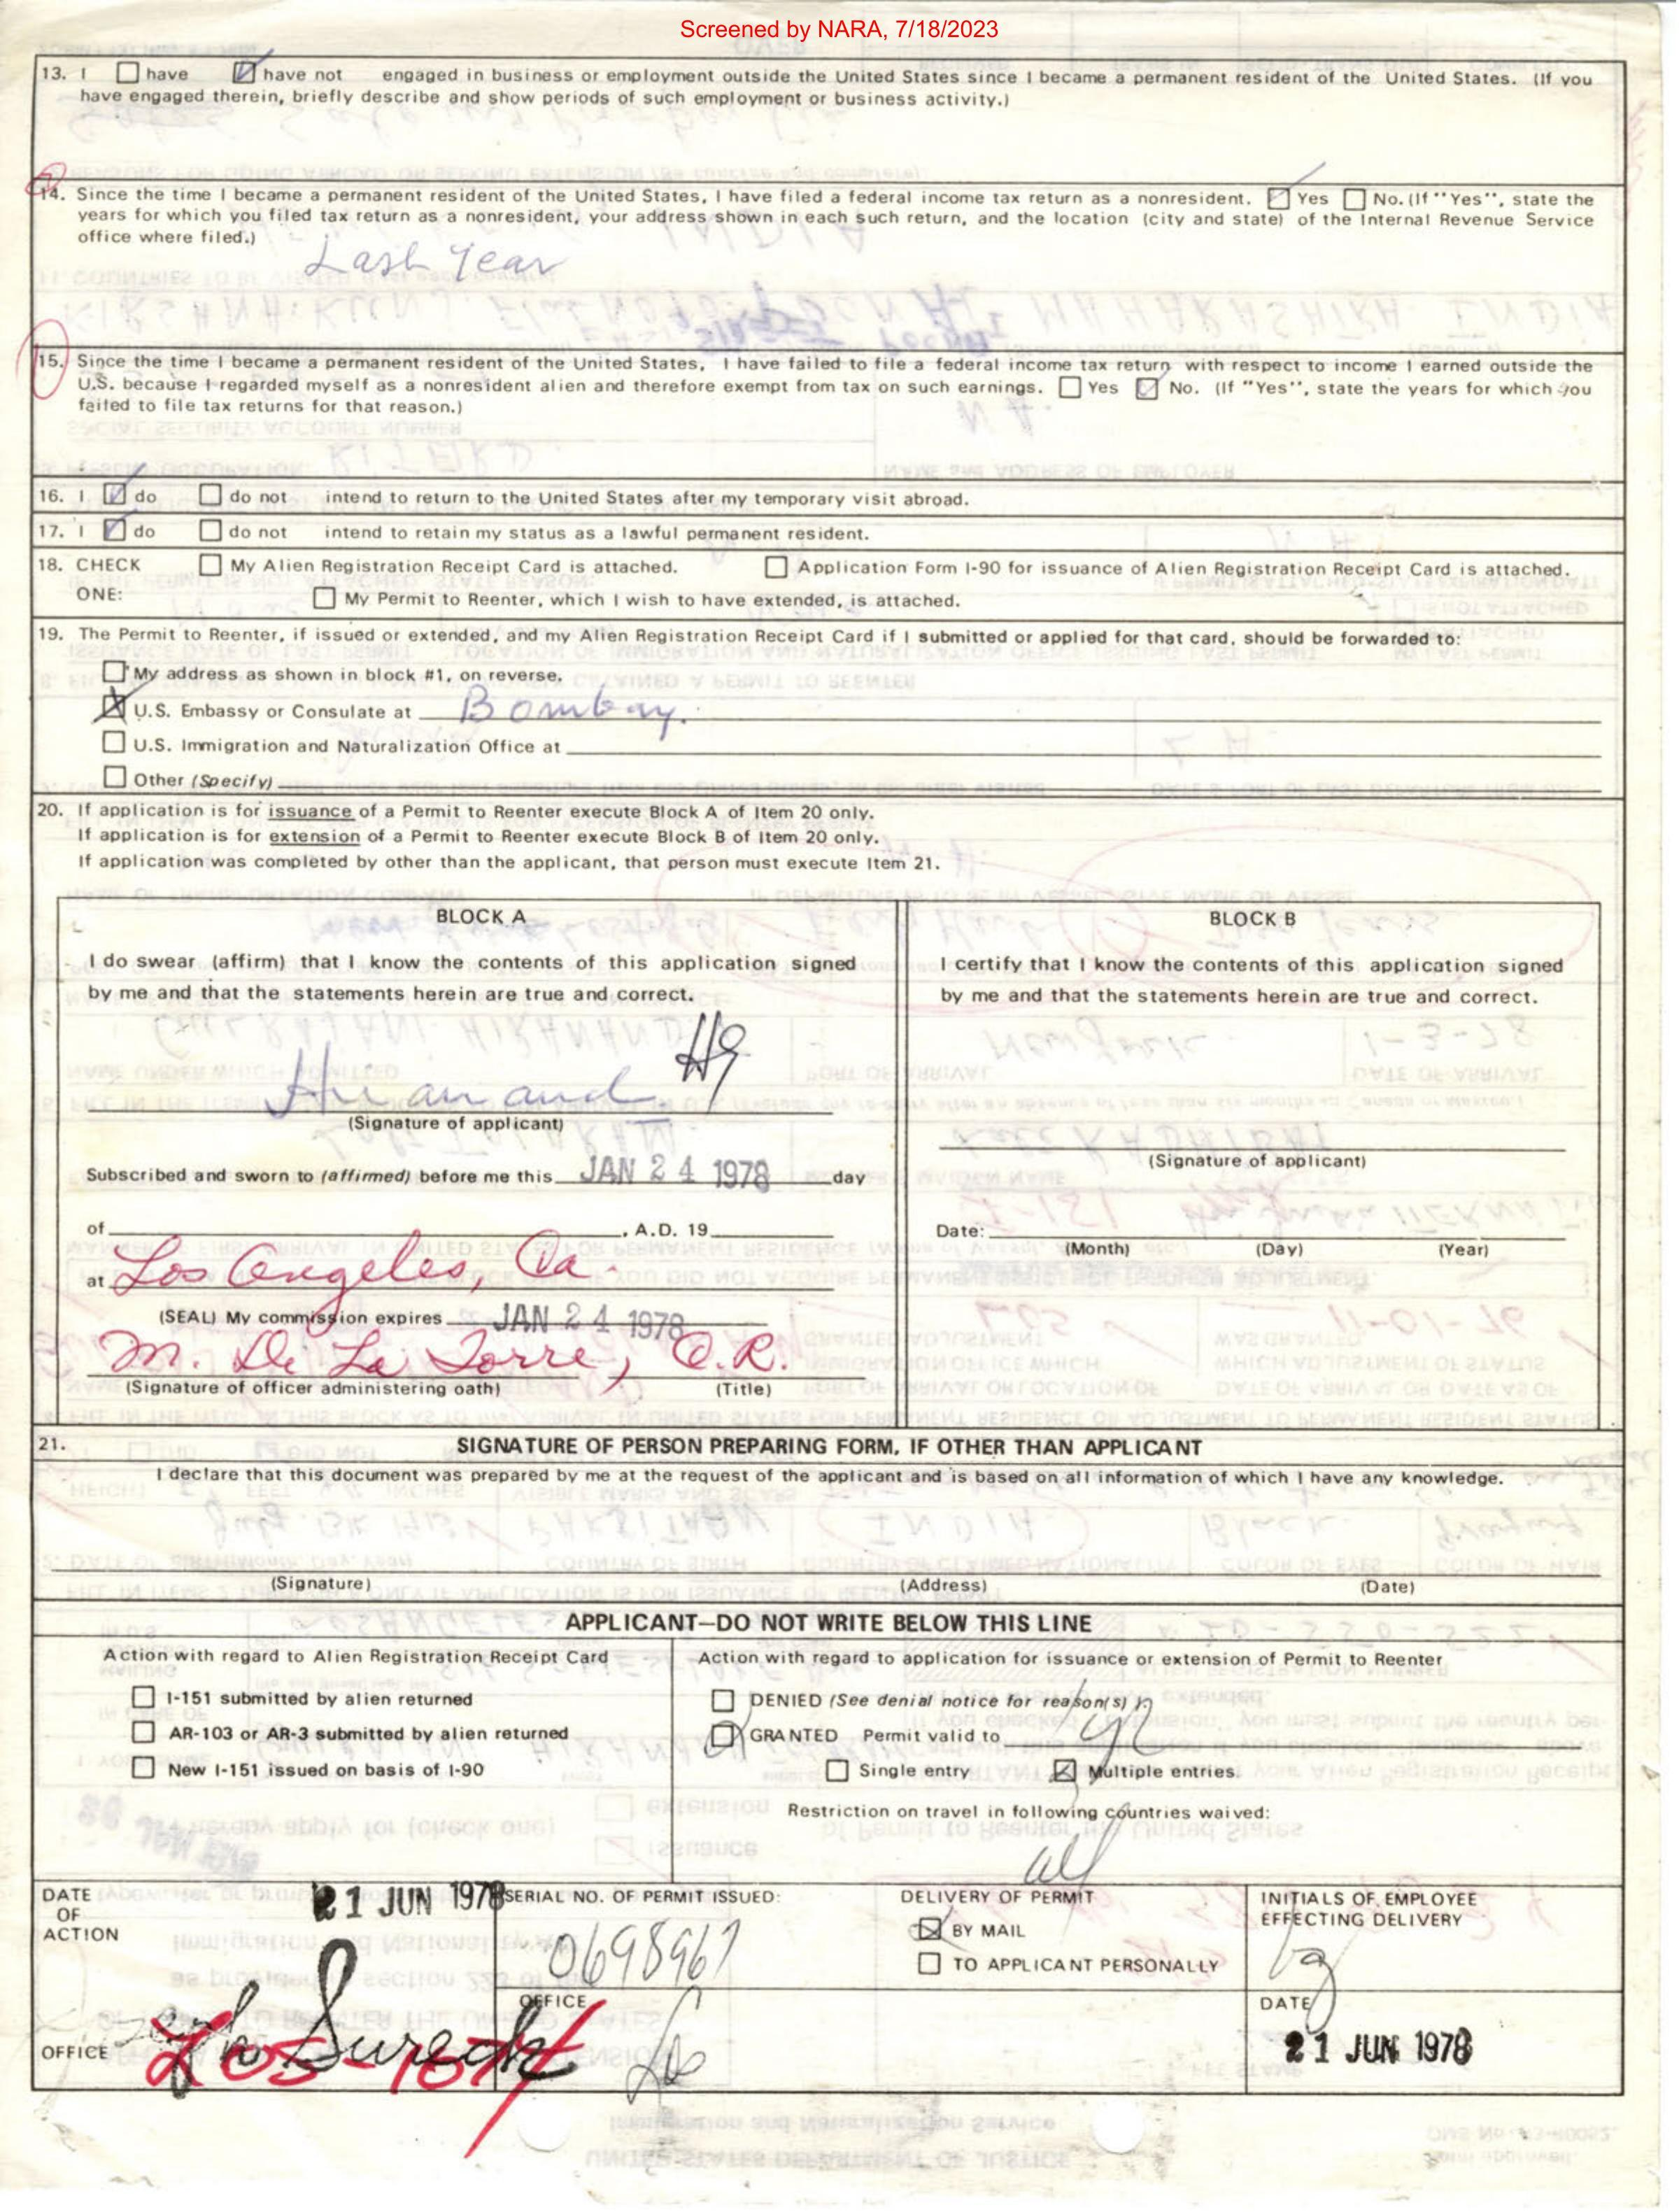 Screened by NARA, 7/18/2023
13. I ☐ have ☑ have not engaged in business or employment outside the United States since I became a permanent resident of the United States. (If you
have engaged therein, briefly describe and show periods of such employment or business activity.)
14. Since the time I became a permanent resident of the United States, I have filed a federal income tax return as a nonresident. ☑ Yes ☐ No. (If "Yes", state the
years for which you filed tax return as a nonresident, your address shown in each such return, and the location (city and state) of the Internal Revenue Service
office where filed.)
Last Year
15. Since the time I became a permanent resident of the United States, I have failed to file a federal income tax return with respect to income I earned outside the
U.S. because I regarded myself as a nonresident alien and therefore exempt from tax on such earnings. ☐ Yes ☑ No. (If "Yes", state the years for which you
failed to file tax returns for that reason.)
16. I ☑ do ☐ do not intend to return to the United States after my temporary visit abroad.
17. I ☑ do ☐ do not intend to retain my status as a lawful permanent resident.
18. CHECK ☐ My Alien Registration Receipt Card is attached. ☐ Application Form I-90 for issuance of Alien Registration Receipt Card is attached.
ONE: ☐ My Permit to Reenter, which I wish to have extended, is attached.
19. The Permit to Reenter, if issued or extended, and my Alien Registration Receipt Card if I submitted or applied for that card, should be forwarded to:
☐ My address as shown in block #1, on reverse.
☒ U.S. Embassy or Consulate at Bombay.
☐ U.S. Immigration and Naturalization Office at
☐ Other (Specify)
20. If application is for issuance of a Permit to Reenter execute Block A of Item 20 only.
If application is for extension of a Permit to Reenter execute Block B of Item 20 only.
If application was completed by other than the applicant, that person must execute Item 21.
BLOCK A
I do swear (affirm) that I know the contents of this application signed
by me and that the statements herein are true and correct.
Hiranand HG
(Signature of applicant)
Subscribed and sworn to (affirmed) before me this JAN 24 1978 day
of , A.D. 19
at Los Angeles, Ca.
(SEAL) My commission expires JAN 24 1978
M. De La Torre, O.R.
(Signature of officer administering oath) (Title)
BLOCK B
I certify that I know the contents of this application signed
by me and that the statements herein are true and correct.
(Signature of applicant)
Date:
(Month) (Day) (Year)
21. SIGNATURE OF PERSON PREPARING FORM, IF OTHER THAN APPLICANT
I declare that this document was prepared by me at the request of the applicant and is based on all information of which I have any knowledge.
(Signature) (Address) (Date)
APPLICANT—DO NOT WRITE BELOW THIS LINE
Action with regard to Alien Registration Receipt Card
☐ I-151 submitted by alien returned
☐ AR-103 or AR-3 submitted by alien returned
☐ New I-151 issued on basis of I-90
Action with regard to application for issuance or extension of Permit to Reenter
☐ DENIED (See denial notice for reason(s).)
☑ GRANTED Permit valid to 1 yr
☐ Single entry ☒ Multiple entries.
Restriction on travel in following countries waived:
all
DATE OF ACTION 21 JUN 1978
SERIAL NO. OF PERMIT ISSUED:
0698967
DELIVERY OF PERMIT
☒ BY MAIL
☐ TO APPLICANT PERSONALLY
INITIALS OF EMPLOYEE
EFFECTING DELIVERY
OFFICE
OFFICE
DATE
21 JUN 1978